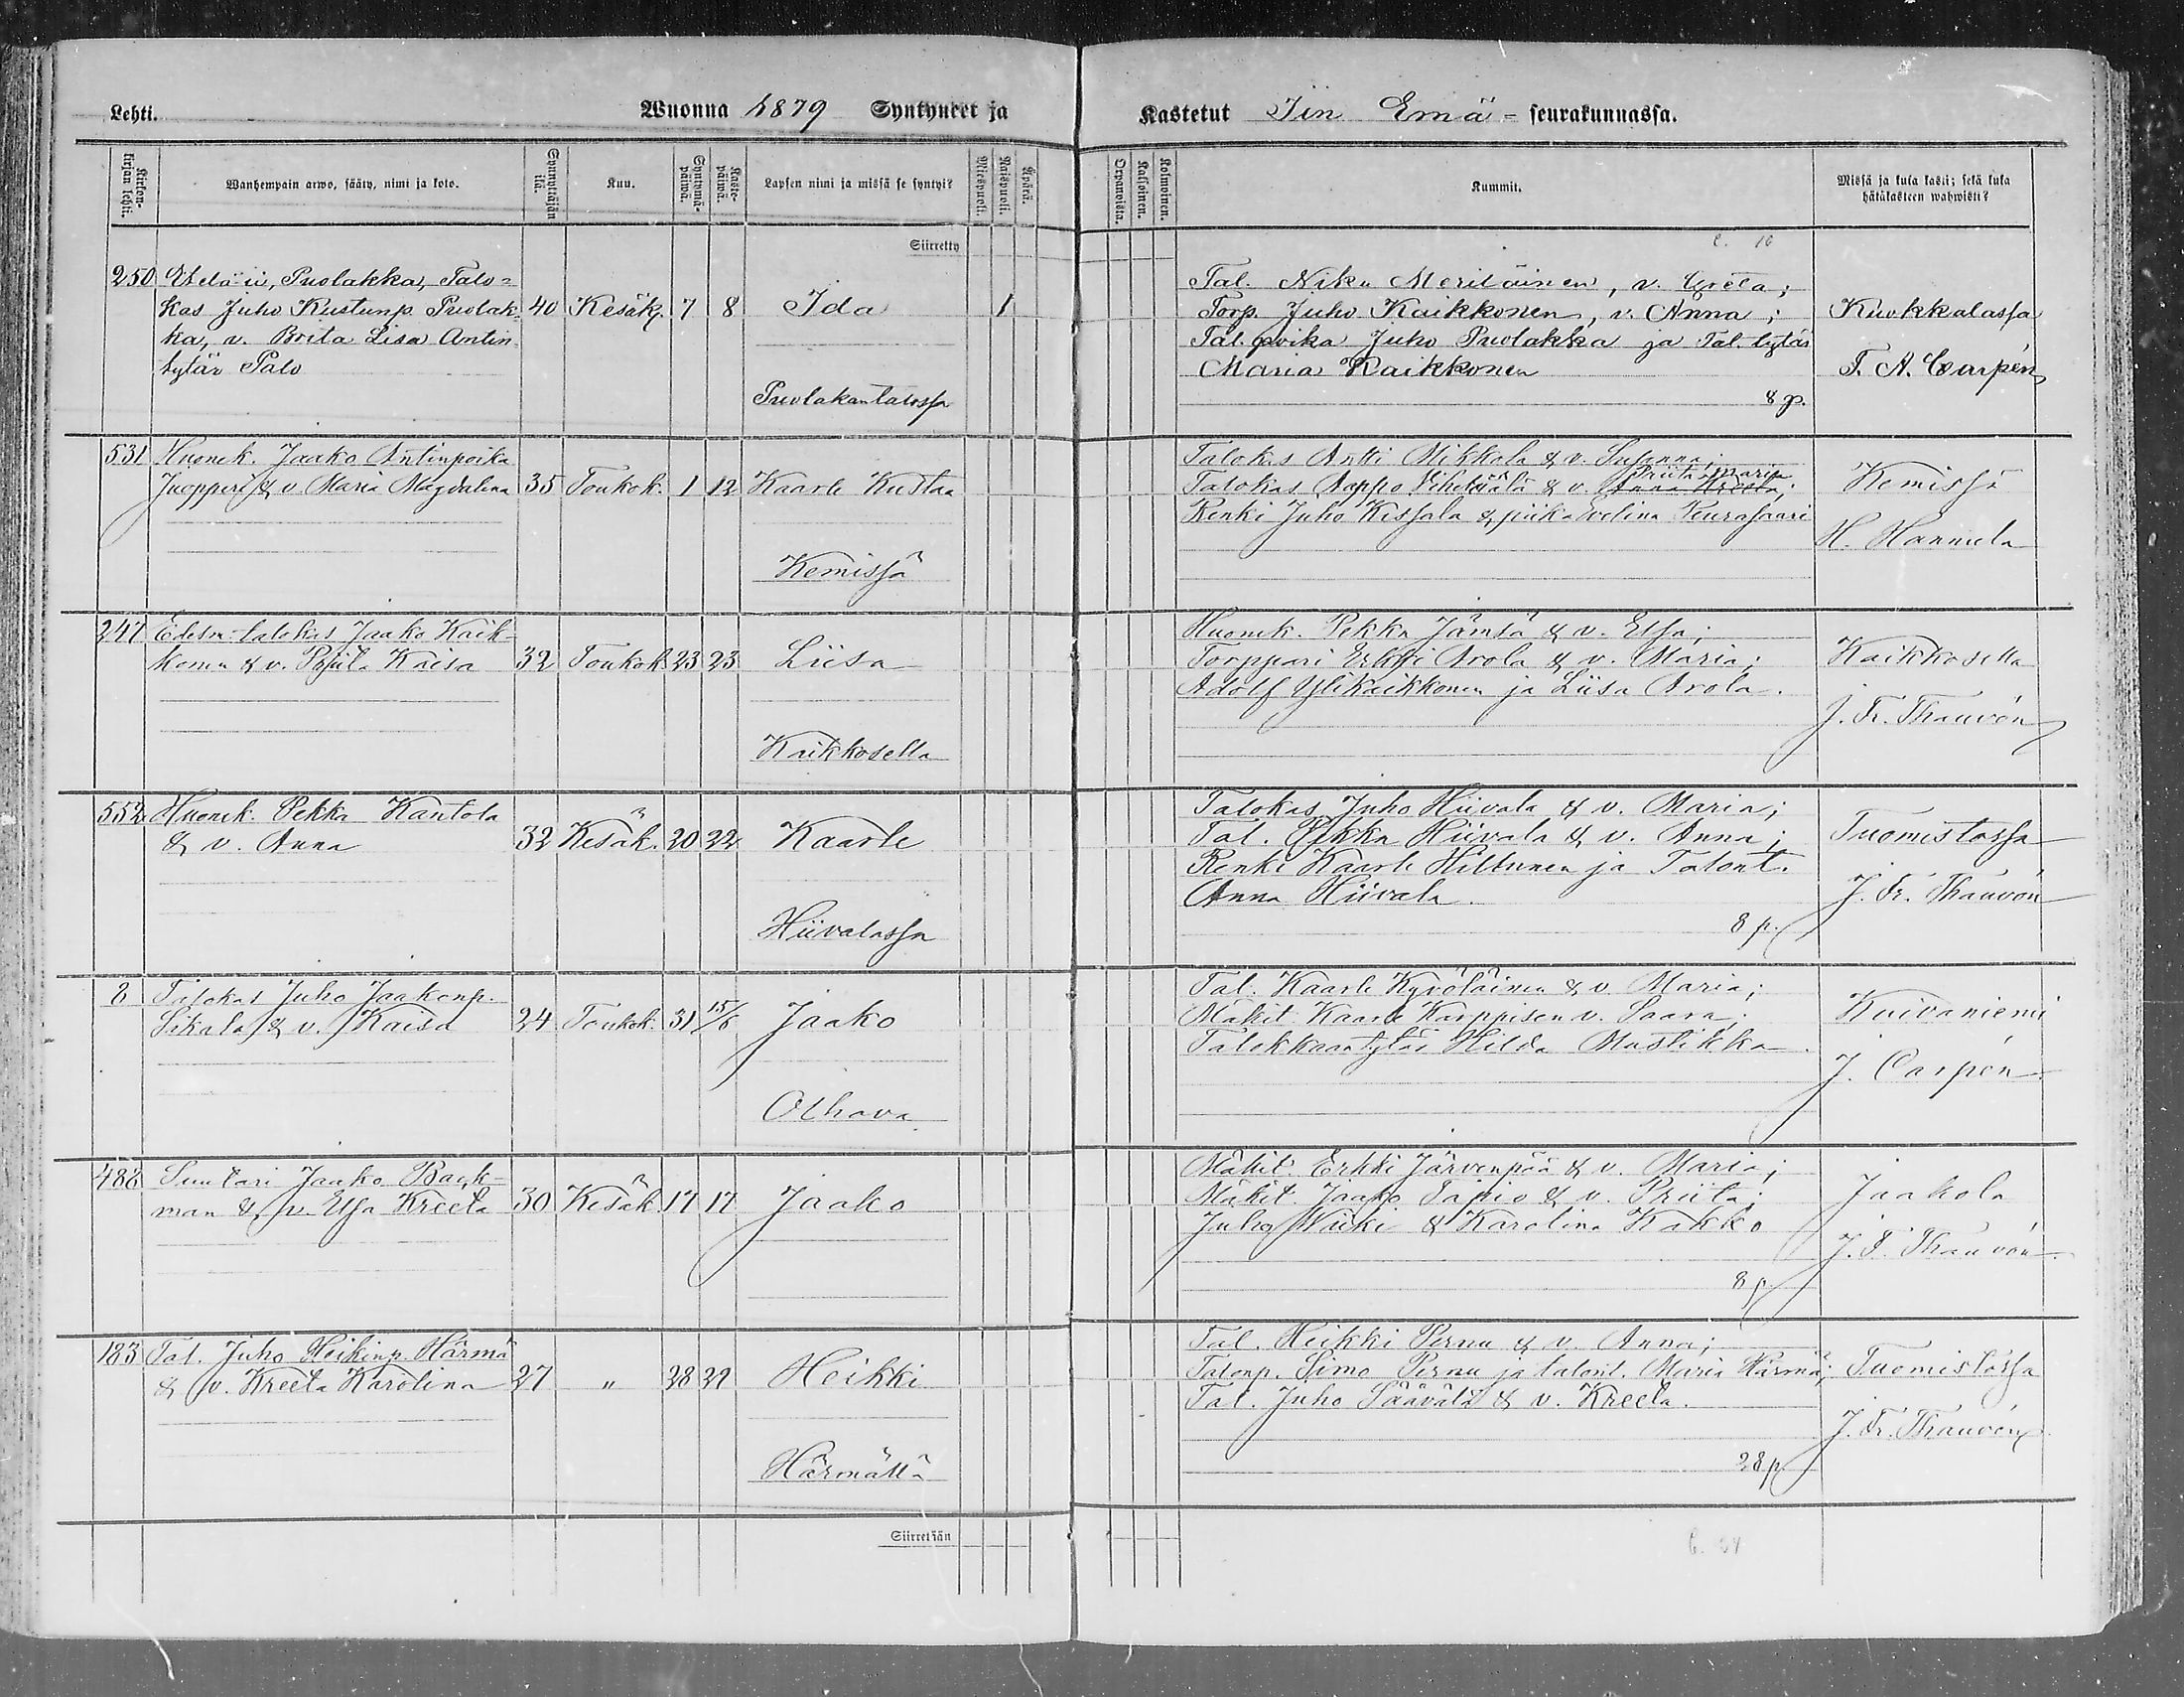 Lehti. Wuonna 1879 Syntyneet ja Kastetut Iin Emä - seurakunnassa.
Kirkon-kirjan lehti. Wanhempain arwo, sääty, nimi ja koto. Synnyttäjän ikä. Kuu. Syntymä-päiwä. Kaste-päiwä. Lapsen nimi ja missä se syntyi? Miespuoli. Waispuoli. Äpärä. Orpanoista. Kaksoinen. Kolmoinen. Kummit. Missä ja kuka kasti; sekä kuka hätäkasteen wahwisti?
Siirretty
250 Puolakka, Talo-
kas Juho Kustunp. Puolak- 40 Kesäk. 7 8 Ida 1
ka, v. Brita Lisa Antin
tytär Palo
Puolakantalossa
Tal. Niku Meriläinen, v. Greta;
Torp. Juho Kaikkonen, v. Anna;
Tal. poika Juho Puolakka ja Tal. tytär
Maria Kaikkonen
8 p.
Kuokkalassa
T. A. Carpén
531 Huonek. Jaako Antinpoika
Juopperi & v. Maria Magdalena 35 Toukok. 1 12 Kaarle Kustaa
Kemissä
Talokas Antti Mikkola & v. Susanna;
Priita Maria
Talokas Aappo & v. Anna Kreeta;
Renki Juho Kissala & piika Evelina Peurasaari
Kemissä
H. Hannula
247 Edesm. talokas Jaako Kaik-
konen & v. Priita Kaisa 32 Toukok. 23 23 Liisa
Kaikkosella
Huonek. Pekka Jämsä & v. Elsa;
Torppari Erkki Arola & v. Maria;
Adolf Ylikaikkonen ja Liisa Arola.
Kaikkosella
J. Fr. Thauvón
552 Huonek. Pekka Kantola
& v. Anna 32 Kesäk. 20 22 Kaarle
Hiivalassa
Talokas Juho Hiivala & v. Maria;
Tal. Pekka Hiivala & v. Anna;
Renki Kaarle Hiltunen ja Talont.
Anna Hiivala.
8 p.
Tuomistossa
J. Fr. Thauvón
8 Talokas Juho Jaakonp.
Sikala & v. Kaisa 24 Toukok. 31 15/6 Jaako
Olhava
Tal. Kaarle Kyröläinen & v. Maria;
Mäkit. Kaarle Karppisen v. Saara;
Talokkaantytär Hilda Mustikka.
Kuivaniemi
J. Carpén
488 Suutari Jaako Back-
man & v. Elsa Kreeta 30 Kesäk. 17 17 Jaako
Mäkit. Erkki Järvenpää & v. Maria;
Mäkit. Jaako Tapio & v. Priita;
Juho & Karolina Kakko
8 p
Jaakola
J. F. Thauvón
183 Tal. Juho Heikinp. Härmä
& v. Kreeta Karolina 27 " 28 29 Heikki
Härmällä
Tal. Heikki Pernu & v. Anna;
Talonp. Simo Pernu ja talont. Maria Härmä;
Tal. Juho Säävälä & v. Kreeta.
28 p
Tuomistossa
J. Fr. Thauvón
Siirretään